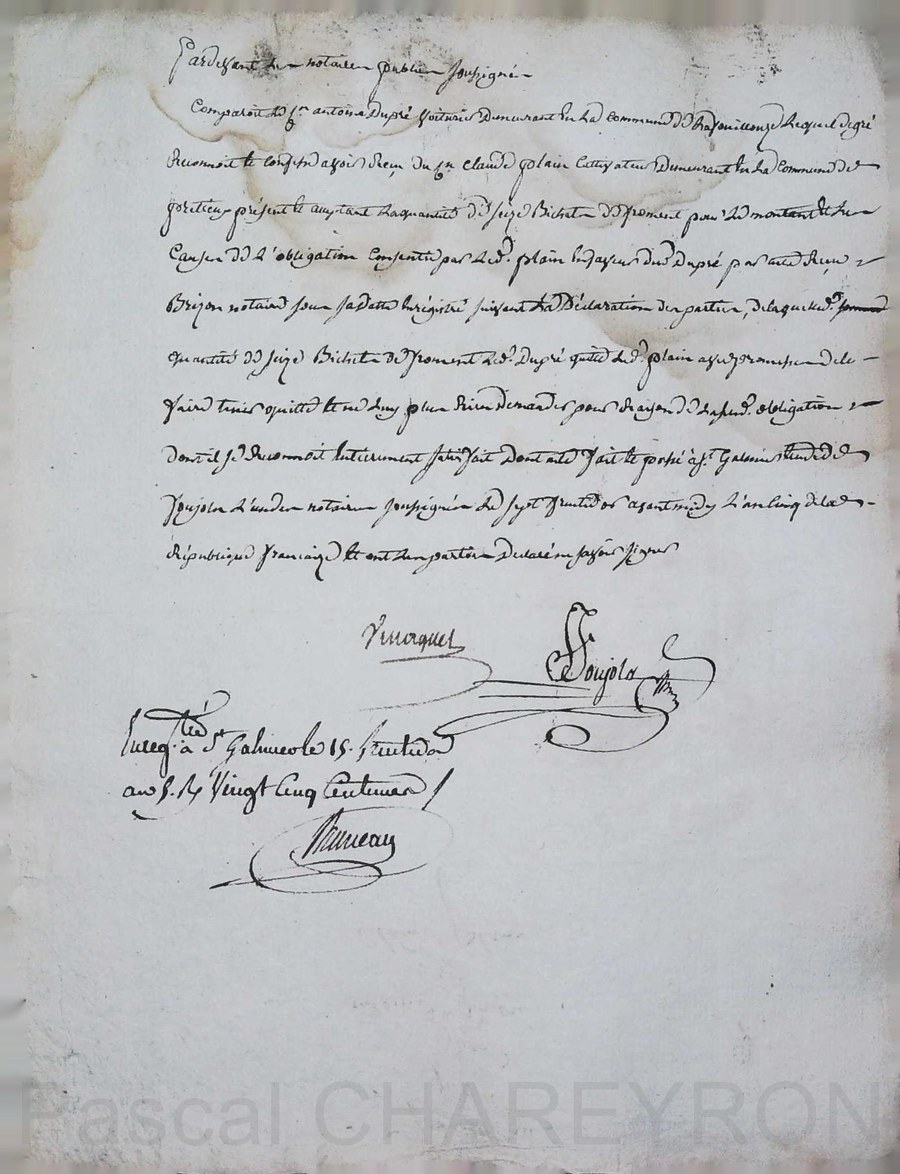 Pardevant les notaires publics soussignés
Comparoit le Cn. antoine Dupré Voiturier Demeurant en La Commune de Lafouillouze Lequel de gré
Reconnoit et Confesse avoir Reçu du Cn. Claude plain Cultivateur Demeurant en La Commune de
présent et acceptant La quantité de seize Bichets de froment pour Le montant et les
Causes de L'obligation Consentie par Led. plain en faveur dud. Dupré par acte Reçu
Brizon notaire sous sa Datte Enrégistré suivant La Déclaration des parties, de laquelle
quantité de seize Bichets de froment Led. Dupré quitte Led. plain avec promesse de le
faire tenir quitte et ne Luy plus Rien Demander pour Raison de Lasusd. obligation
Dont il se Reconnoit Entierement satisfait Dont acte fait et passé à St. Galmier Etude de
Foujols L'un des notaires soussignés Le sept fructidor avant midy L'an Cinq de la
République francaize Et ont Les parties Declaré ne savoir signer
Foujols
Enregtré. à St Galmier le 15. fructidor
an 5. R. Vingt Cinq Centimes
Pascal CHAREYRON